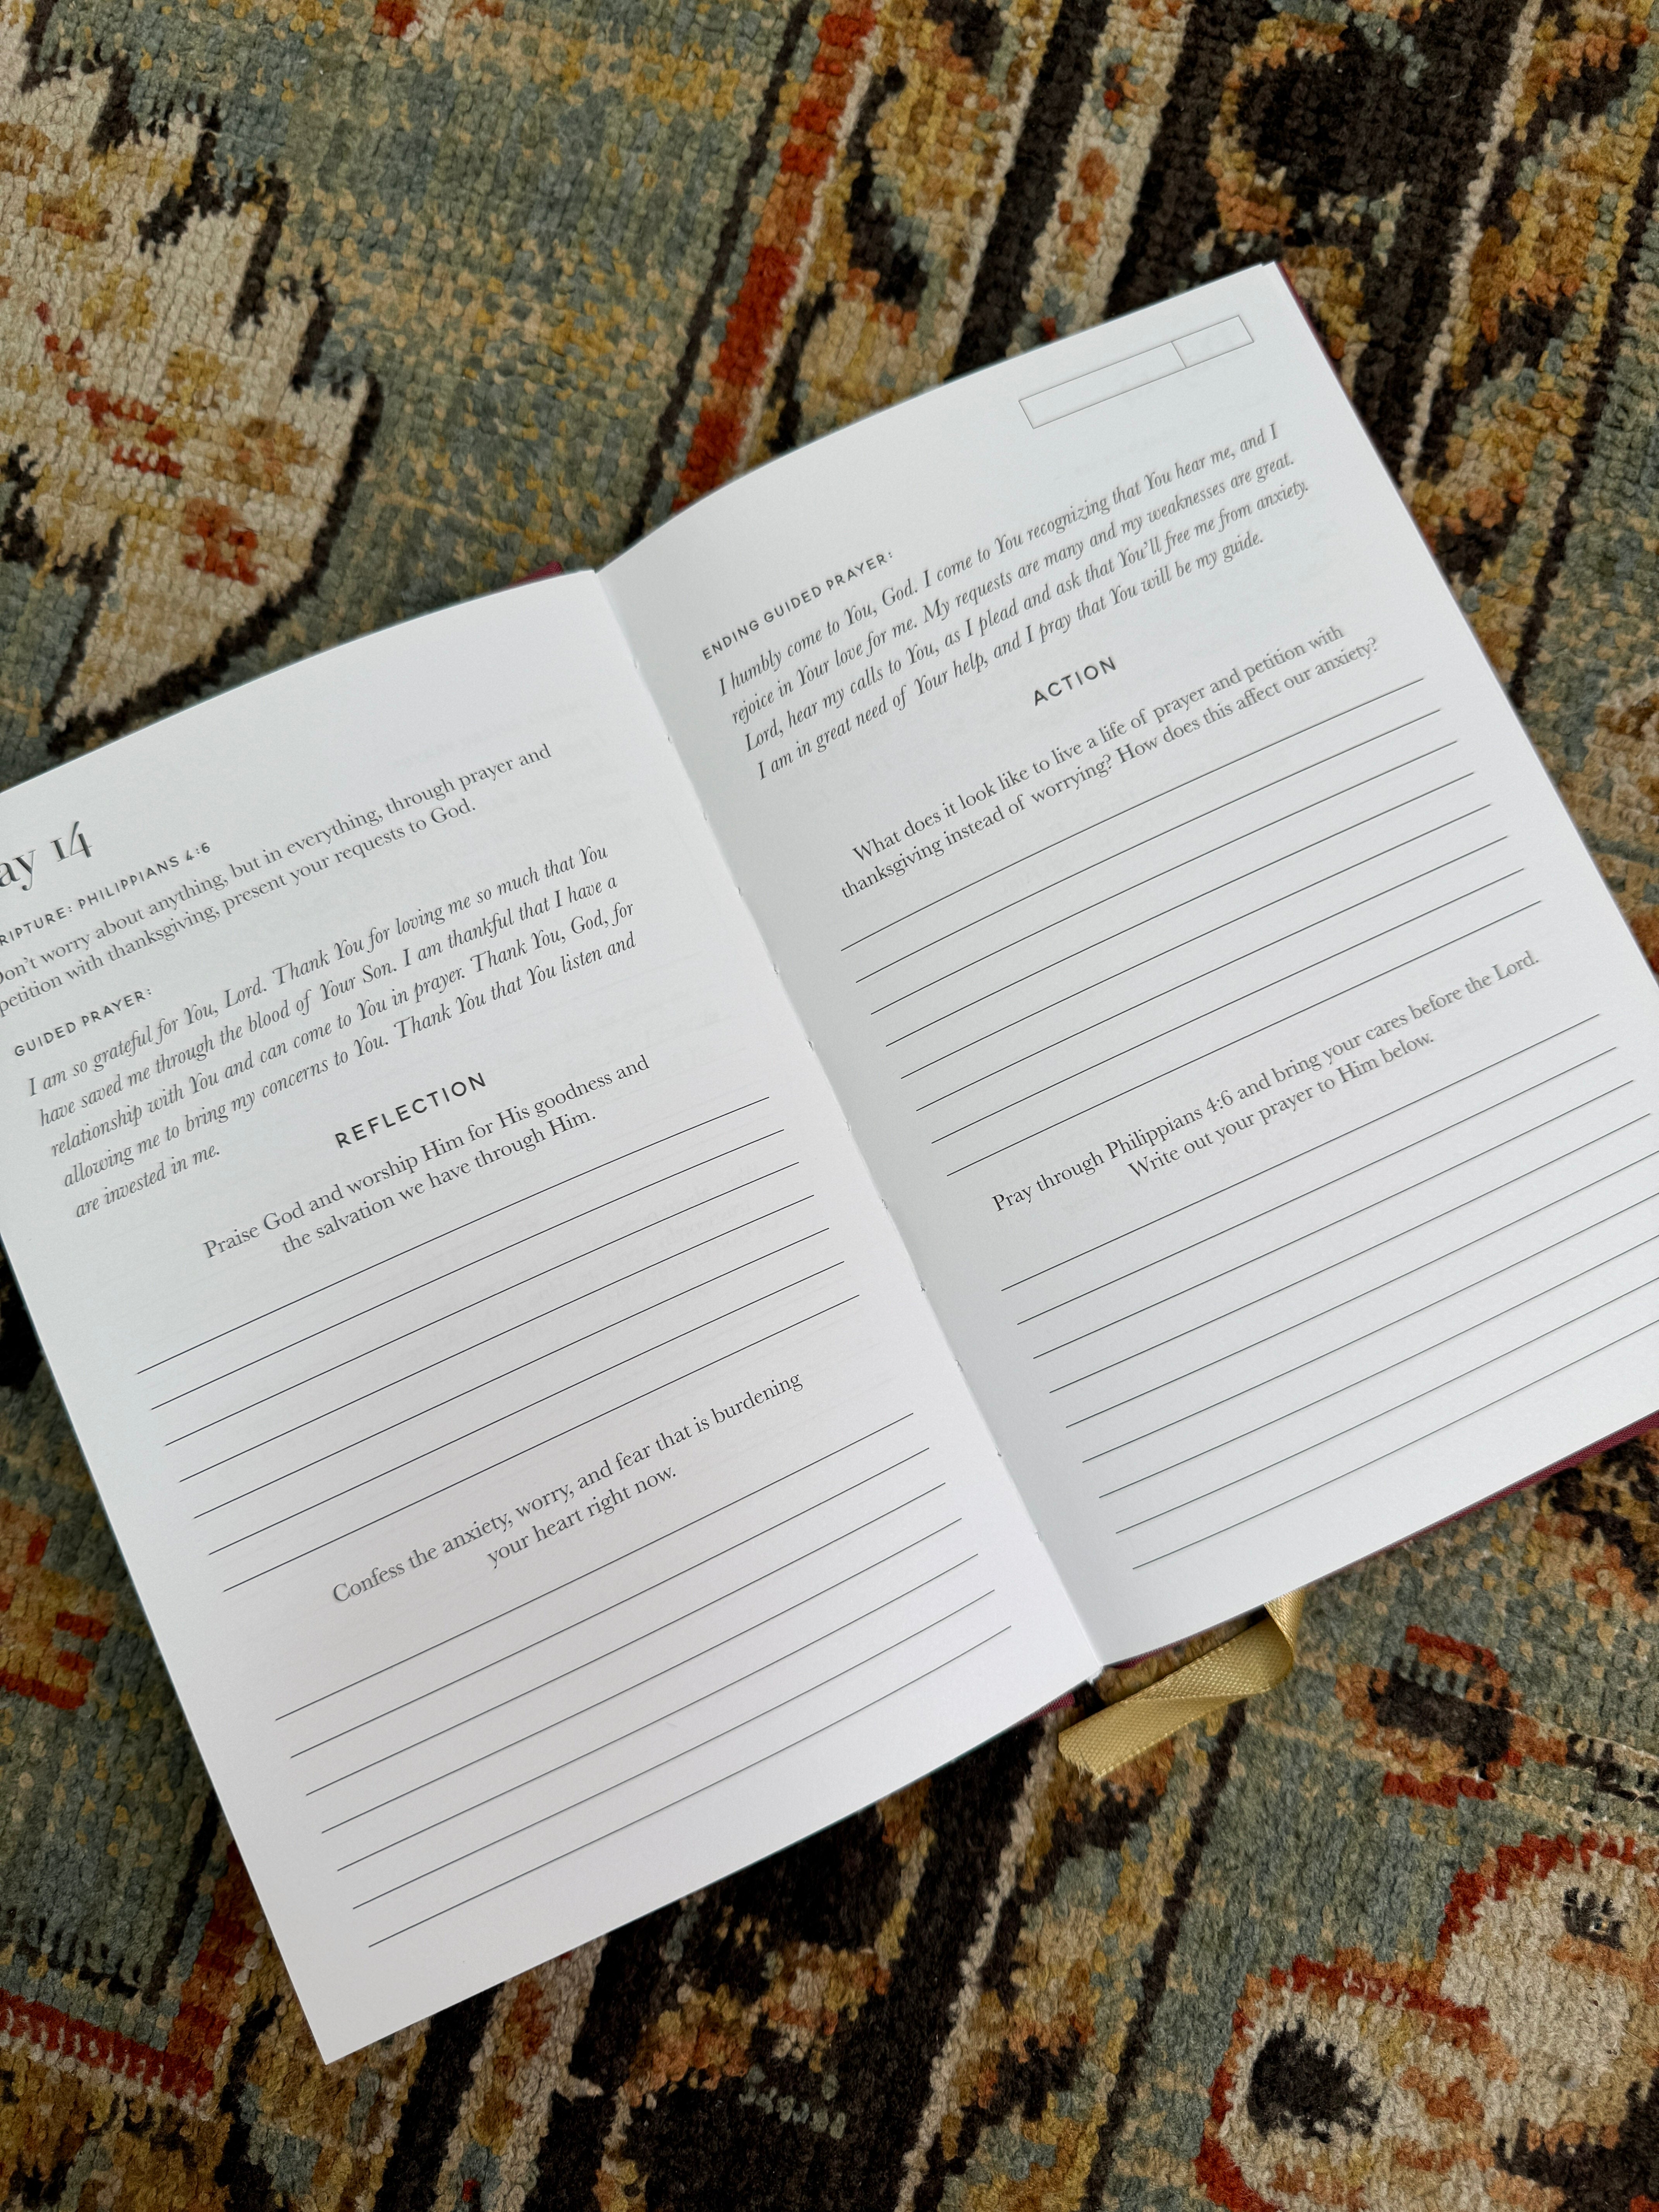 ay 14
RIPTURE: PHILIPPIANS 4:6
Don't worry about anything, but in everything, through prayer and
petition with thanksgiving, present your requests to God.
GUIDED PRAYER:
I am so grateful for You, Lord. Thank You for loving me so much that You
have saved me through the blood of Your Son. I am thankful that I have a
relationship with You and can come to You in prayer. Thank You, God, for
allowing me to bring my concerns to You. Thank You that You listen and
are invested in me.
REFLECTION
Praise God and worship Him for His goodness and
the salvation we have through Him.
Confess the anxiety, worry, and fear that is burdening
your heart right now.
ENDING GUIDED PRAYER:
I humbly come to You, God. I come to You recognizing that You hear me, and I
rejoice in Your love for me. My requests are many and my weaknesses are great.
Lord, hear my calls to You, as I plead and ask that You'll free me from anxiety.
I am in great need of Your help, and I pray that You will be my guide.
ACTION
What does it look like to live a life of prayer and petition with
thanksgiving instead of worrying? How does this affect our anxiety?
Pray through Philippians 4:6 and bring your cares before the Lord.
Write out your prayer to Him below.